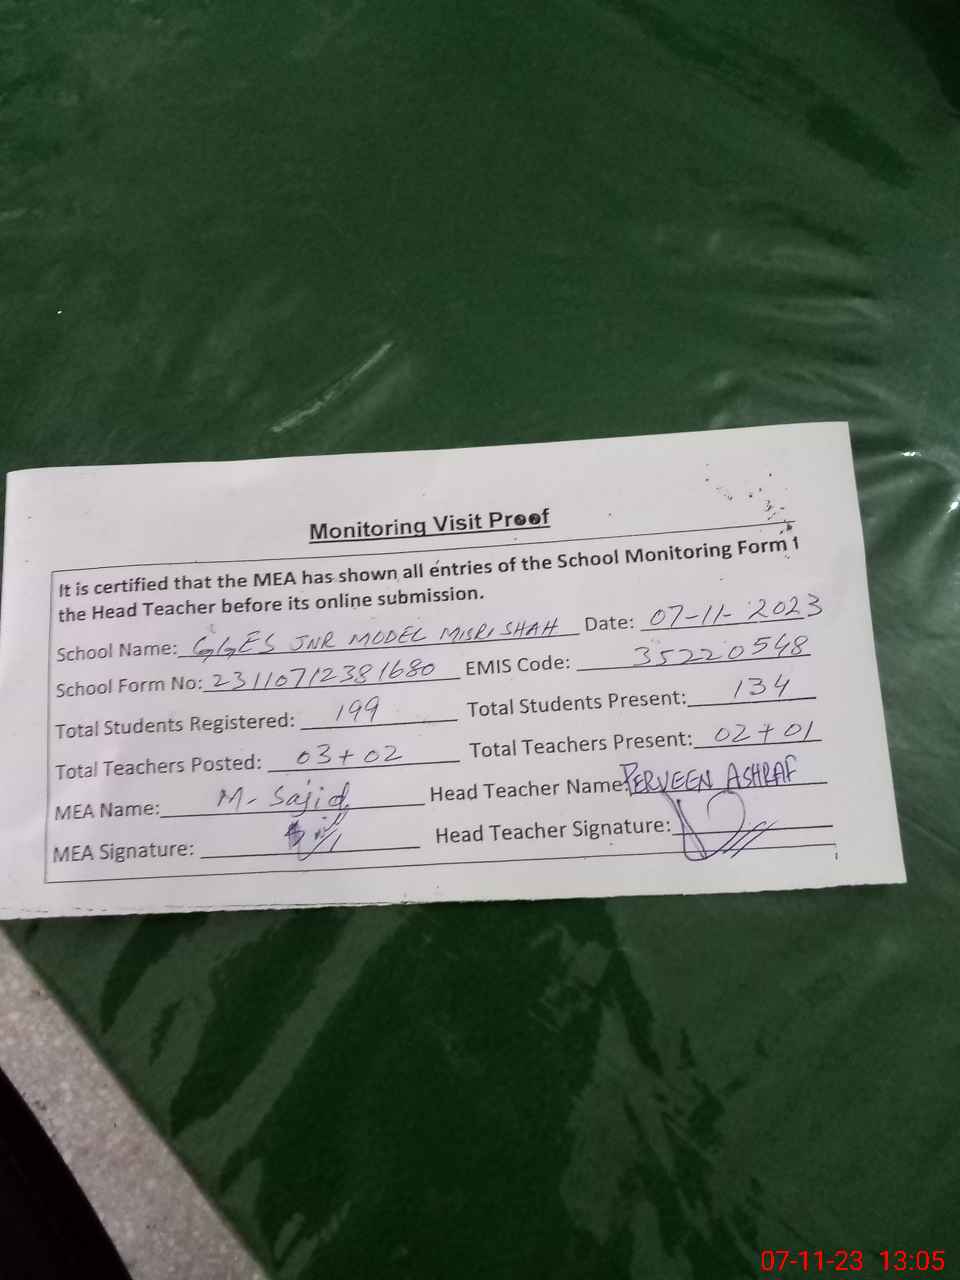 Monitoring Visit Proof
It is certified that the MEA has shown all entries of the School Monitoring Form t
the Head Teacher before its online submission.
School Name: GGES JNR MODEL MISRI SHAH Date: 07-11-2023
School Form No: 23110712381680 EMIS Code: 35220548
Total Students Registered: 199 Total Students Present: 134
Total Teachers Posted: 03+02 Total Teachers Present: 02+01
MEA Name: M-Sajid Head Teacher Name: PERVEEN ASHRAF
MEA Signature: Head Teacher Signature:
07-11-23 13:05